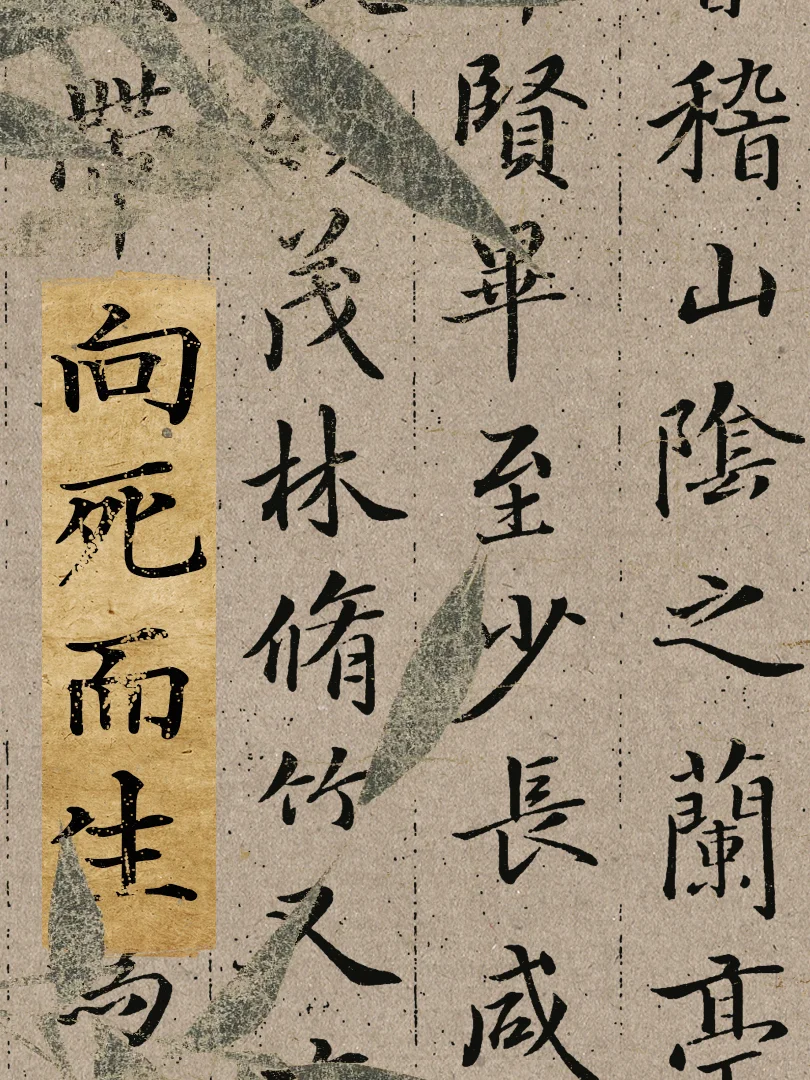 稽山陰之蘭亭
賢畢至少長咸
茂林脩竹又
帶向死而生